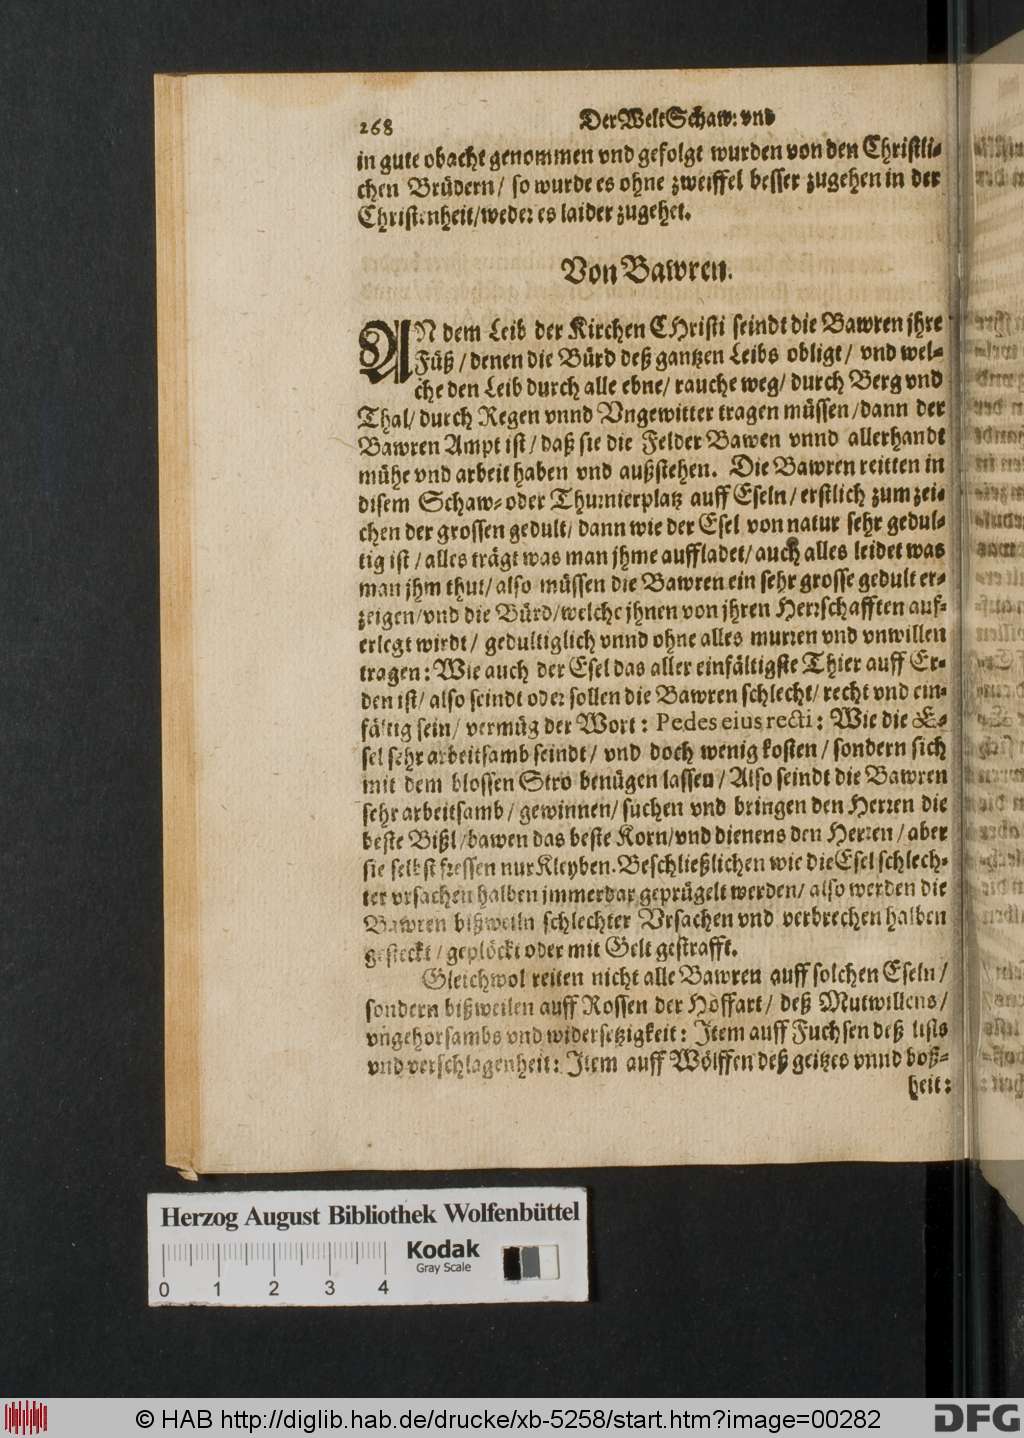 268 Der Welt Schaw: vnd
in gute obacht genommen vnd gefolgt wurden von den Christli-
chen Brüdern / so wurde es ohne zweiffel besser zugehen in der
Christenheit / weder es laider zugehet.
Von Bawren.
AN dem Leib der Kirchen CHristi seindt die Bawren jhre
Füß / denen die Bürd deß gantzen Leibs obligt / vnd wel-
che den Leib durch alle ebne / rauche weg / durch Berg vnd
Thal / durch Regen vnnd Vngewitter tragen müssen / dann der
Bawren Ampt ist / daß sie die Felder Bawen vnnd allerhandt
mühe vnd arbeit haben vnd außstehen. Die Bawren reitten in
disem Schaw- oder Thurnierplatz auff Eseln / erstlich zum zei-
chen der grossen gedult / dann wie der Esel von natur sehr gedul-
tig ist / alles trägt was man jhme auffladet / auch alles leidet was
man jhm thut / also müssen die Bawren ein sehr grosse gedult er-
zeigen / vnd die Bürd / welche jhnen von jhren Herrschafften auf-
erlegt wirdt / gedultiglich vnnd ohne alles murren vnd vnwillen
tragen: Wie auch der Esel das aller einfältigste Thier auff Er-
den ist / also seindt oder sollen die Bawren schlecht / recht vnd ein-
fältig sein / vermüg der Wort: Pedes eius recti: Wie die E-
sel sehr arbeitsamb seindt / vnd doch wenig kosten / sondern sich
mit dem blossen Stro benügen lassen / Also seindt die Bawren
sehr arbeitsamb / gewinnen / suchen vnd bringen den Herren die
beste Bißl / bawen das beste Korn / vnd dienens den Herren / aber
sie selbst fressen nur Kleyben. Beschließlichen wie die Esel schlech-
ter vrsachen halben jmmerdar geprügelt werden / also werden die
Bawren bißweiln schlechter Vrsachen vnd verbrechen halben
gesteckt / geplöckt oder mit Gelt gestrafft.
Gleichwol reiten nicht alle Bawren auff solchen Eseln /
sondern bißweilen auff Rossen der Hoffart / deß Mutwillens /
vngehorsambs vnd widersetzigkeit: Item auff Fuchsen deß lists
vnd verschlagenheit: Item auff Wölffen deß geitzes vnnd boß-
heit:
Herzog August Bibliothek Wolfenbüttel
Kodak
Gray Scale
0 1 2 3 4
© HAB http://diglib.hab.de/drucke/xb-5258/start.htm?image=00282
DFG